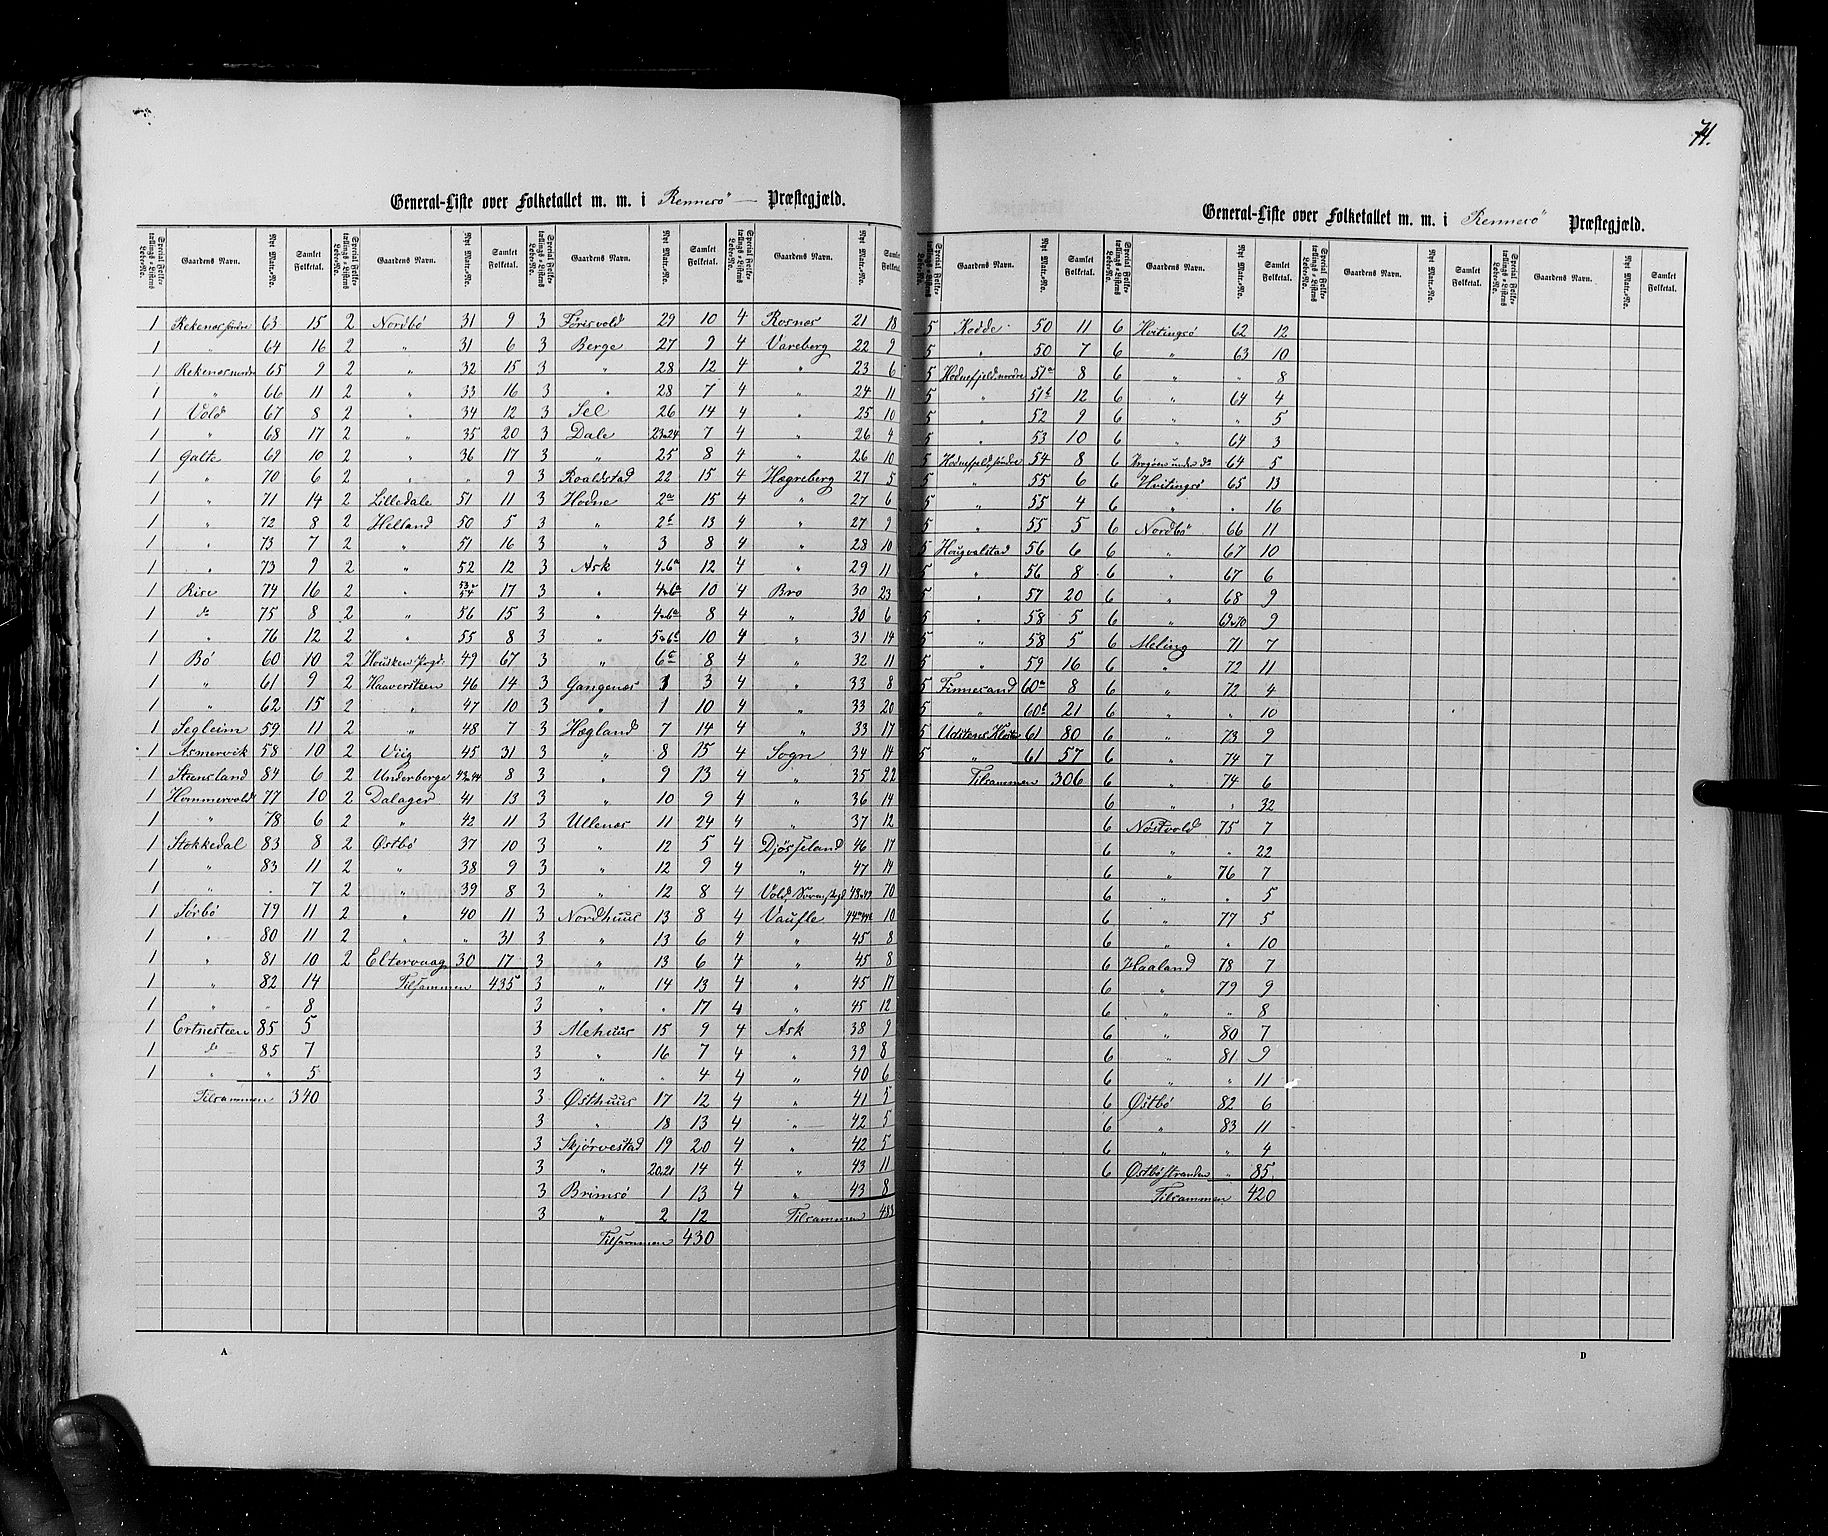 71.
General-Liste over Folketallet m. m. i Rennesö Præstegjæld.
Special Folketællings-Listens Løbe-No. Gaardens Navn. Nyt Matr.-No. Samlet Folketal. Special Folketællings-Listens Løbe-No. Gaardens Navn. Nyt Matr.-No. Samlet Folketal. Special Folketællings-Listens Løbe-No. Gaardens Navn. Nyt Matr.-No. Samlet Folketal. Special Folketællings-Listens Løbe-No. Gaardens Navn. Nyt Matr.-No. Samlet Folketal.
1 Rekenæs søndre 63 15 2 Nordbö 31 9 3 Förisvold 29 10 4 Rosnæs 21 18
1 " 64 16 2 " 31 6 3 Berge 27 9 4 Vareberg 22 9
1 Rekenæs nordre 65 9 2 " 32 15 3 " 28 12 4 " 23 6
1 " 66 11 2 " 33 16 3 " 28 7 4 " 24 11
1 Vold 67 8 2 " 34 12 3 Sel 26 14 4 " 25 10
1 " 68 17 2 " 35 20 3 Dale 23&24 7 4 " 26 4
1 Galte 69 10 2 " 36 17 3 " 25 8 4 " 26 10
1 " 70 6 2 " " 9 3 Roaldstad 22 15 4 Hægreberg 27 5
1 " 71 14 2 Lilledale 51 11 3 Hodne 2a 15 4 " 27 6
1 " 72 8 2 Helland 50 5 3 " 2b 13 4 " 27 9
1 " 73 7 2 " 51 16 3 " 3 8 4 " 28 10
1 " 73 9 2 " 52 12 3 Ask 4&6a 12 4 " 29 11
1 Rise 74 16 2 " 53& 54 17 3 " 4&6a 10 4 Bro 30 23
1 do 75 8 2 " 56 15 3 " 4&6a 8 4 " 30 6
1 " 76 12 2 " 55 8 3 " 5&6b 10 4 " 31 14
1 Bö 60 10 2 Housken Prgd. 49 67 3 " 6c 8 4 " 32 11
1 " 61 9 2 Haaversteen 46 14 3 Gangenæs 1 3 4 " 33 8
1 " 62 15 2 " 47 10 3 " 1 10 4 " 33 20
1 Segleim 59 11 2 " 48 7 3 Hægland 7 14 4 " 33 17
1 Asmervik 58 10 2 Viig 45 31 3 " 8 15 4 Sogn 34 14
1 Steensland 84 6 2 Underberge 43&44 8 3 " 9 13 4 " 35 22
1 Hommervold 77 10 2 Dalager 41 13 3 " 10 9 4 " 36 14
1 " 78 6 2 " 42 11 3 Ullenæs 11 24 4 " 37 12
1 Stokkedal 83 8 2 Østbö 37 10 3 " 12 5 4 Djösseland 46 17
1 " 83 11 2 " 38 9 3 " 12 9 4 " 47 14
1 " " 7 2 " 39 8 3 " 12 8 4 Vold, 48&49 70
1 Sörbö 79 11 2 " 40 11 3 Nordhuus 13 8 4 Vaufle 10
1 " 80 11 2 " " 31 3 " 13 6 4 " 45 8
1 " 81 10 2 Eltervaag 30 17 3 " 13 6 4 " 45 8
1 " 82 14 Tilsammen 435 3 " 14 13 4 " 45 17
1 " " 8 3 " " 17 4 " 45 12
1 Ertnesteen 85 5 3 Mehuus 15 9 4 Ask 38 9
1 do 85 7 3 " 16 7 4 " 39 8
1 " " 5 3 " " 4 4 " 40 6
Tilsammen 340 3 Østhuus 17 12 4 " 41 5
3 " 18 13 4 " 42 5
3 Skjörvestad 19 20 4 " 42 5
3 " 20&21 14 4 " 43 11
3 Brimsö 1 13 4 " 43 8
3 " 2 12 Tilsammen
Tilsammen 430
A
General-Liste over Folketallet m. m. i Rennesö Præstegjæld.
Special Folketællings-Listens Løbe-No. Gaardens Navn. Nyt Matr.-No. Samlet Folketal. Special Folketællings-Listens Løbe-No. Gaardens Navn. Nyt Matr.-No. Samlet Folketal. Special Folketællings-Listens Løbe-No. Gaardens Navn. Nyt Matr.-No. Samlet Folketal. Special Folketællings-Listens Løbe-No. Gaardens Navn. Nyt Matr.-No. Samlet Folketal.
5 Kodde 50 11 6 Hvitingsö 62 12
5 " 50 7 6 " 63 10
5 Hodnefjeld nordre 51a 8 6 " " 8
5 " 51b 12 6 " 64 4
5 " 52 9 6 " " 5
5 " 53 10 6 " 64 3
5 Hodnefjeld söndre 54 8 6 under do 64 5
5 " 55 6 6 Hvitingsö 65 13
5 " 55 4 6 " " 16
5 " 55 5 6 Nordbö 66 11
5 Hougvalstad 56 6 6 " 67 10
5 " 56 8 6 " 67 6
5 " 57 20 6 " 68 9
5 " 58 5 6 " 69&70 9
5 " 58 5 6 Meling 71 7
5 " 59 16 6 " 72 11
5 Finnesand 60a 8 6 " 72 4
5 " 60b 21 6 " " 10
5 Utstens Kloster 61 80 6 " 73 9
5 " 61 57 6 " 74 7
Tilsammen 306 6 " 74 6
6 " " 32
6 Nöstvold 75 7
6 " " 22
6 " 76 7
6 " " 5
6 " 77 5
6 " " 10
6 Haaland 78 7
6 " 79 9
6 " " 8
6 " 80 7
6 " 81 9
6 " " 11
6 Østbö 82 6
6 " 83 11
6 " " 4
6 Østböstranden " 85
Tilsammen 420
D